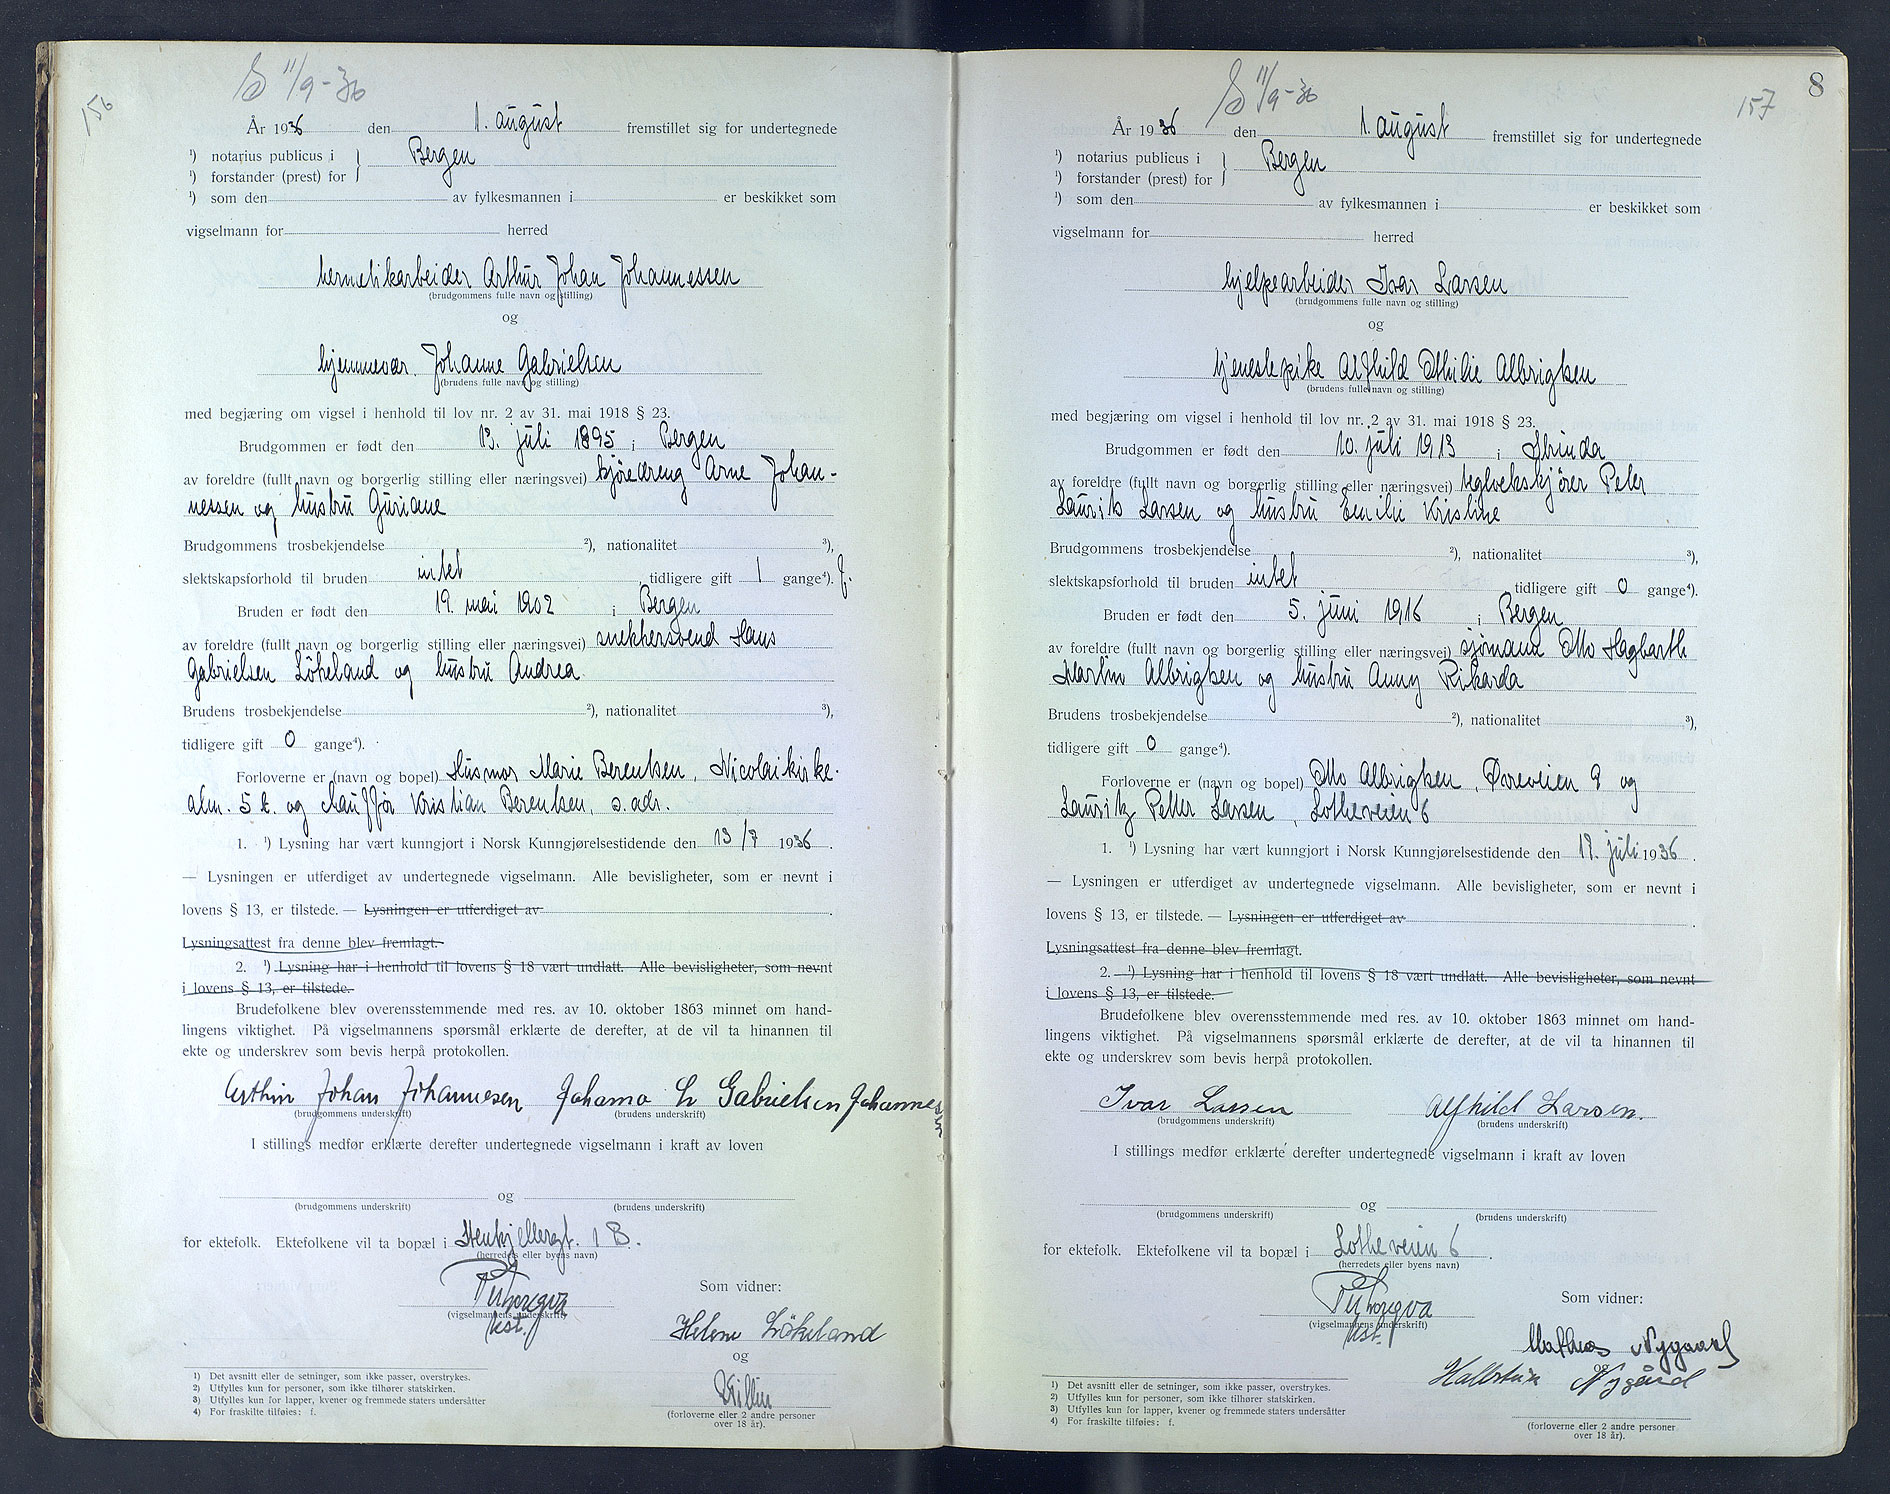 156
S 11/9-36
År 1936 den 1. august fremstillet sig for undertegnede
¹) notarius publicus i } Bergen
¹) forstander (prest) for
¹) som den av fylkesmannen i er beskikket som
vigselmann for herred
hermetikarbeider Arthur Johan Johannessen
(brudgommens fulle navn og stilling)
og
hjemmevær. Johanne Gabrielsen
(brudens fulle navn og stilling)
med begjæring om vigsel i henhold til lov nr. 2 av 31. mai 1918 § 23.
Brudgommen er født den 13. juli 1895 i Bergen
av foreldre (fullt navn og borgerlig stilling eller næringsvei) kjøredreng Arne Johan-
nessen og hustru Guriane
Brudgommens trosbekjendelse ²), nationalitet ³),
slektskapsforhold til bruden intet, tidligere gift 1 gange⁴). f.
Bruden er født den 19. mai 1902 i Bergen
av foreldre (fullt navn og borgerlig stilling eller næringsvei) snekkersvend Hans
Gabrielsen Lökeland og hustru Andrea
Brudens trosbekjendelse ²), nationalitet ³),
tidligere gift 0 gange⁴).
Forloverne er (navn og bopel) Husmor Marie Berentsen, Nicolaikirke-
alm. 5 t. og chauffør Kristian Berentsen, s. adr.
1. ¹) Lysning har vært kunngjort i Norsk Kunngjørelsestidende den 13/7 1936.
— Lysningen er utferdiget av undertegnede vigselmann. Alle bevisligheter, som er nevnt i
lovens § 13, er tilstede. — Lysningen er utferdiget av
Lysningsattest fra denne blev fremlagt.
2. ¹) Lysning har i henhold til lovens § 18 vært undlatt. Alle bevisligheter, som nevnt
i lovens § 13, er tilstede.
Brudefolkene blev overensstemmende med res. av 10. oktober 1863 minnet om hand-
lingens viktighet. På vigselmannens spørsmål erklærte de derefter, at de vil ta hinannen til
ekte og underskrev som bevis herpå protokollen.
Arthur Johan Johannesen Johanna L Gabrielsen Johannes
(brudgommens underskrift) (brudens underskrift)
I stillings medfør erklærte derefter undertegnede vigselmann i kraft av loven
og
(brudgommens underskrift) (brudens underskrift)
for ektefolk. Ektefolkene vil ta bopæl i Stenkjellergt. 1 B.
(herredets eller byens navn)
Som vidner:
(vigselmannens underskrift)
kst.
Helene Lökeland
og
(forloverne eller 2 andre personer
over 18 år).
1) Det avsnitt eller de setninger, som ikke passer, overstrykes.
2) Utfylles kun for personer, som ikke tilhører statskirken.
3) Utfylles kun for lapper, kvener og fremmede staters undersåtter
4) For fraskilte tilføies: f.
8
157
S 11/9-36
År 1936 den 1. august fremstillet sig for undertegnede
¹) notarius publicus i } Bergen
¹) forstander (prest) for
¹) som den av fylkesmannen i er beskikket som
vigselmann for herred
hjelpearbeider Ivar Larsen
(brudgommens fulle navn og stilling)
og
tjenestepike Alfhild Othilie Albrigtsen
(brudens fulle navn og stilling)
med begjæring om vigsel i henhold til lov nr. 2 av 31. mai 1918 § 23.
Brudgommen er født den 10. juli 1913 i Strinda
av foreldre (fullt navn og borgerlig stilling eller næringsvei) teglverkskjører Peter
Laurits Larsen og hustru Emilie Kristine
Brudgommens trosbekjendelse ²), nationalitet ³),
slektskapsforhold til bruden intet tidligere gift 0 gange⁴).
Bruden er født den 5. juni 1916 i Bergen
av foreldre (fullt navn og borgerlig stilling eller næringsvei) sjømann Otto Hagbarth
Martin Albrigtsen og hustru Anny Rikarda
Brudens trosbekjendelse ²), nationalitet ³),
tidligere gift 0 gange⁴).
Forloverne er (navn og bopel) Otto Albrigtsen, Øvreveien 9 og
Lauritz Petter Larsen, Lotheveien 6
1. ¹) Lysning har vært kunngjort i Norsk Kunngjørelsestidende den 17. juli 1936.
— Lysningen er utferdiget av undertegnede vigselmann. Alle bevisligheter, som er nevnt i
lovens § 13, er tilstede. — Lysningen er utferdiget av
Lysningsattest fra denne blev fremlagt.
2. ¹) Lysning har i henhold til lovens § 18 vært undlatt. Alle bevisligheter, som nevnt
i lovens § 13, er tilstede.
Brudefolkene blev overensstemmende med res. av 10. oktober 1863 minnet om hand-
lingens viktighet. På vigselmannens spørsmål erklærte de derefter, at de vil ta hinannen til
ekte og underskrev som bevis herpå protokollen.
Ivar Larsen Alfhild Larsen.
(brudgommens underskrift) (brudens underskrift)
I stillings medfør erklærte derefter undertegnede vigselmann i kraft av loven
og
(brudgommens underskrift) (brudens underskrift)
for ektefolk. Ektefolkene vil ta bopæl i Lotheveien 6.
(herredets eller byens navn)
Som vidner:
(vigselmannens underskrift)
kst.
Mathias Nygaard
og
Hallstein Nygård
(forloverne eller 2 andre personer
over 18 år).
1) Det avsnitt eller de setninger, som ikke passer, overstrykes.
2) Utfylles kun for personer, som ikke tilhører statskirken.
3) Utfylles kun for lapper, kvener og fremmede staters undersåtter
4) For fraskilte tilføies: f.